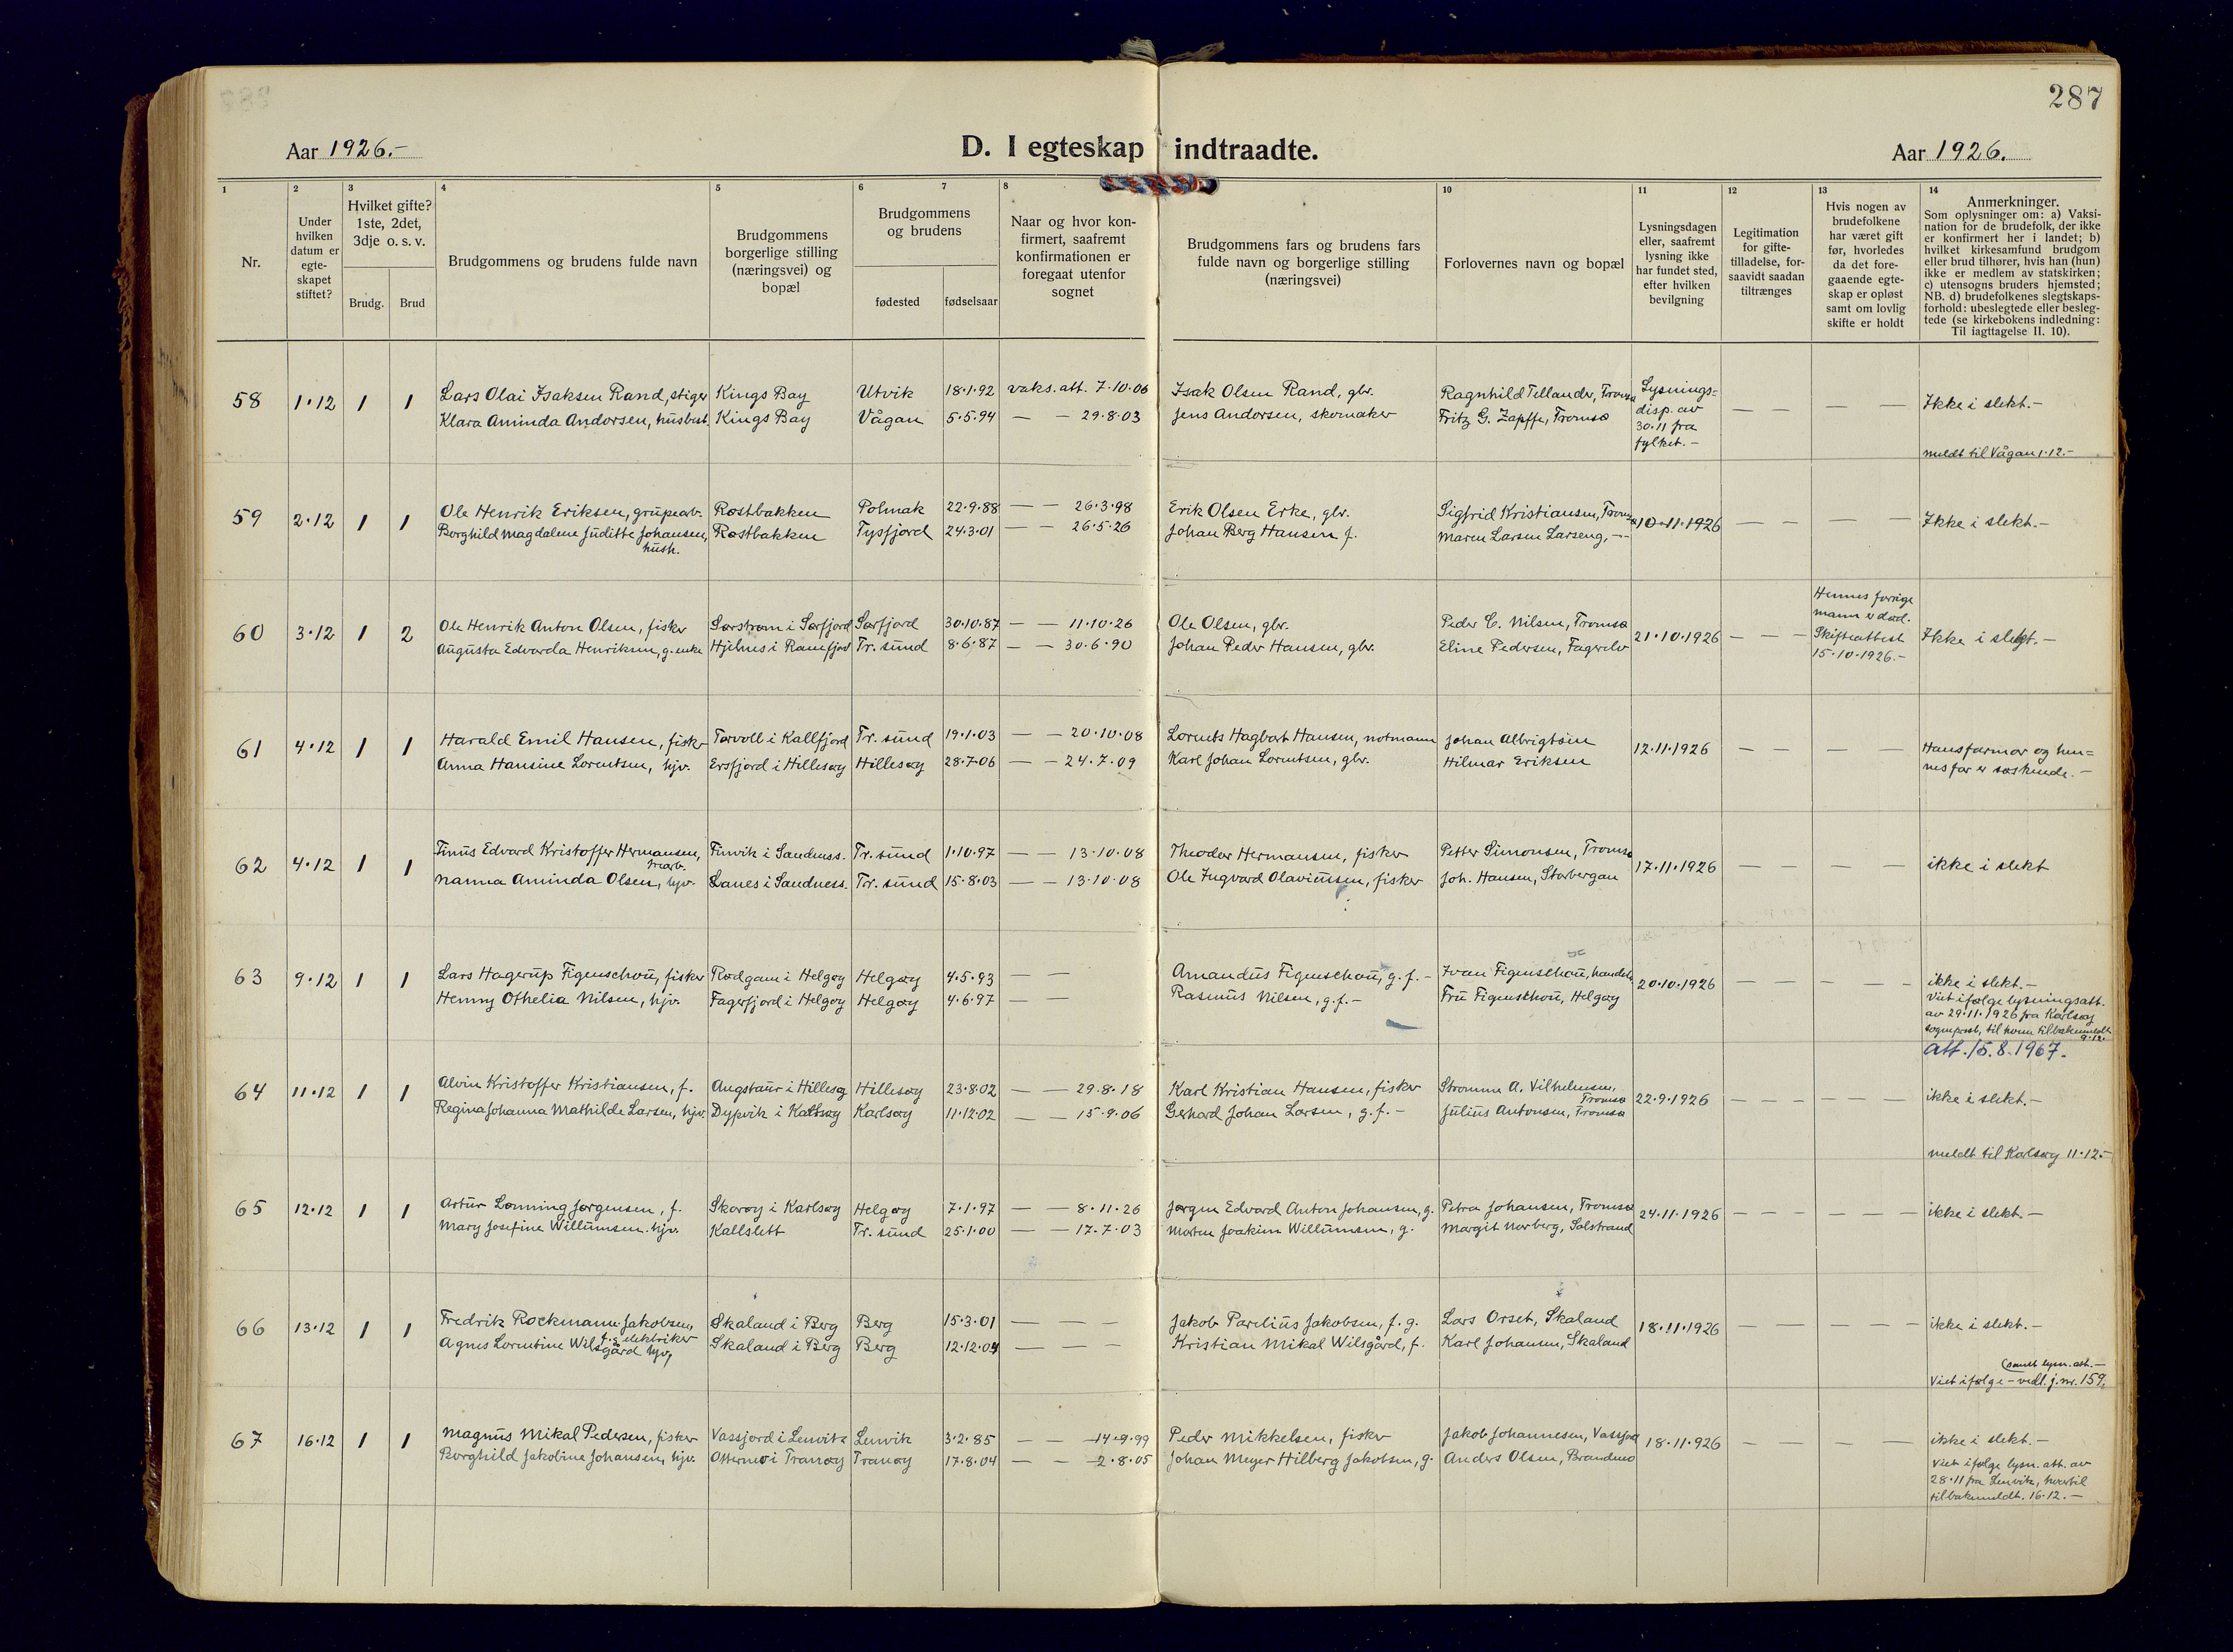 287
Aar 1926.-
D. I egteskap indtraadte.
Aar 1926.
1 2 3 4 5 6 7 8 10 11 12 13 14
Nr.
Under
hvilken
datum er
egte-
skapet
stiftet?
Hvilket gifte?
1ste, 2det,
3dje o. s. v.
Brudg. Brud
Brudgommens og brudens fulde navn
Brudgommens
borgerlige stilling
(næringsvei) og
bopæl
Brudgommens
og brudens
fødested fødselsaar
Naar og hvor kon-
firmert, saafremt
konfirmationen er
foregaat utenfor
sognet
Brudgommens fars og brudens fars
fulde navn og borgerlige stilling
(næringsvei)
Forlovernes navn og bopæl
Lysningsdagen
eller, saafremt
lysning ikke
har fundet sted,
efter hvilken
bevilgning
Legitimation
for gifte-
tilladelse, for-
saavidt saadan
tiltrænges
Hvis nogen av
brudefolkene
har været gift
før, hvorledes
da det fore-
gaaende egte-
skap er opløst
samt om lovlig
skifte er holdt
Anmerkninger.
Som oplysninger om: a) Vaksi-
nation for de brudefolk, der ikke
er konfirmert her i landet; b)
hvilket kirkesamfund brudgom
eller brud tilhører, hvis han (hun)
ikke er medlem av statskirken;
c) utensogns bruders hjemsted;
NB. d) brudefolkenes slegtskaps-
forhold: ubeslegtede eller besleg-
tede (se kirkebokens indledning:
Til iagttagelse II. 10).
58 1·12 1 1
Lars Olai Isaksen Rand, stiger Kings Bay Utvik 18·1.92 vaks. att. 7·10·06 Isak Olsen Rand, gbr. Ragnhild Tellander, Tromsø
Klara Aminda Andorsen, husbest. Kings Bay Vågan 5·5.94 — — 29·8·03 Jens Andorsen, skomaker Fritz G. Zapffe, Tromsø
Lysnings-
disp. av
30·11 fra
fylket. -
— — — —
Ikke i slekt.-
meldt til Vågan 1·12.-
59 2·12 1 1
Ole Henrik Eriksen, grubearb. Røstbakken Polmak 22·9·88 — — 26·3·98 Erik Olsen Erke, gbr. Sigfrid Kristiansen, Tromsø
Borghild Magdalene Juditte Johansen, Røstbakken Tysfjord 24·3·01 — — 26·5·26 Johan Berg Hansen f. Maren Larsen Larseng, —
hush.
10·11·1926 — — — — Ikke i slekt.-
60 3·12 1 2
Ole Henrik Anton Olsen, fisker Sørstrøm i Sørfjord Sørfjord 30·10·87 — — 11·10·26 Ole Olsen, gbr. Peder C. Nilsen, Tromsø
Augusta Edvarda Henriksen, g. enke Hjilnes i Ramfjord Tr. sund 8·6·87 — — 30·6·90 Johan Peder Hansen, gbr. Eline Pedersen, Fagerelv
21·10·1926 — — —
Hennes forrige
mann er død.
Skifteattest
15·10·1926.-
Ikke i slegt.-
61 4·12 1 1
Harald Emil Hansen, fisker Torvoll i Kallfjord Tr. sund 19·1·03 — — 20·10·08 Lorents Hagbart Hansen, notmann Johan Albrigtsen
Anna Hansine Lorentsen, hjv. Ersfjord i Hillesøy Hillesøy 28·7·06 — — 24·7·09 Karl Johan Lorentsen, gbr. Hilmar Eriksen
12·11·1926 — — — —
Hans farmor og hen=
nes far er søskende.-
62 4·12 1 1
Tinus Edvard Kristoffer Hermansen, Finvik i Sandness. Tr. sund 1·10·97 — — 13·10·08 Theodor Hermansen, fisker Petter Simonsen, Tromsø
Nanna Aminda Olsen, hjv. Lanes i Sandness. Tr. sund 15·8·03 — — 13·10·08 Ole Ingvard Olaviussen, fisker Joh. Hansen, Storbergan
17·11·1926 — — — — ikke i slekt
63 9·12 1 1
Lars Hagerup Figenschou, fisker Rødgam i Helgøy Helgøy 4·5·93 — — Amandus Figenschou, g. f. - Ivan Figenschou, handels
Henny Othelia Nilsen, hjv. Fagerfjord i Helgøy Helgøy 4·6·97 — — Rasmus Nilsen, g. f. - Fru Figenschou, Helgøy
20·10·1926 — — — — —
ikke i slekt.-
Viet ifølge lysningsatt.
av 29·11·1926 fra Karlsøy
sogneprest, til hvem tilbakemeldt
9·12.
att. 15.8.1967.
64 11·12 1 1
Alvin Kristoffer Kristiansen, f. Angstaur i Hillesøy Hillesøy 23·8·02 — — 29·8·18 Karl Kristian Hansen, fisker Strømme A. Vilhelmsen,
Tromsø
Regina Johanna Mathilde Larsen, hjv. Dypvik i Karlsøy Karlsøy 11·12·02 — — 15·9·06 Gerhard Johan Larsen, g. f. - Julius Antonsen, Tromsø
22·9·1926 — — — — — — ikke i slekt.-
meldt til Karlsøy 11·12.-
65 12·12 1 1
Artur Lønning Jørgensen, f. Skorøy i Karlsøy Helgøy 7·1·97 — — 8·11·26 Jørgen Edvard Anton Johansen, g. Petra Johansen, Tromsø
Mary Josefine Willumsen. hjv. Kallslett Tr. sund 25·1·00 — — 17·7·03 Morten Joakim Willumsen, g. Margit Norberg, Solstrand
24·11·1926 — — — — — ikke i slekt.-
66 13·12 1 1
Fredrik Rockmann Jakobsen, Skaland i Berg Berg 15·3·01 — — — Jakob Parelius Jakobsen, f. g. Lars Orset, Skaland
f. g. elektriker
Agnes Lorentine Wilsgård hjv. Skaland i Berg Berg 12·12·04 — — — Kristian Mikal Wilsgård, f. Karl Johansen, Skaland
18·11·1926 — — — — — ikke i slekt.-
(samt lysn. att.-
Viet ifølge - vedl. j. nr. 159.
67 16·12 1 1
Magnus Mikal Pedersen, fisker Vassjord i Lenvik Lenvik 3·2·85 — — 14·9·99 Peder Mikkelsen, fisker Jakob Johannesen, Vassjord
Borghild Jakobine Johansen, hjv. Otternes i Tranøy Tranøy 17·8·04 — — 2·8·05 Johan Meyer Hilberg Jakobsen, g. Anders Olsen, Brandmo
18·11·926 — — — —
ikke i slekt.-
Viet ifølge lysn. att. av
28·11 fra Lenvik, hvortil
tilbakemeldt. 16·12.-